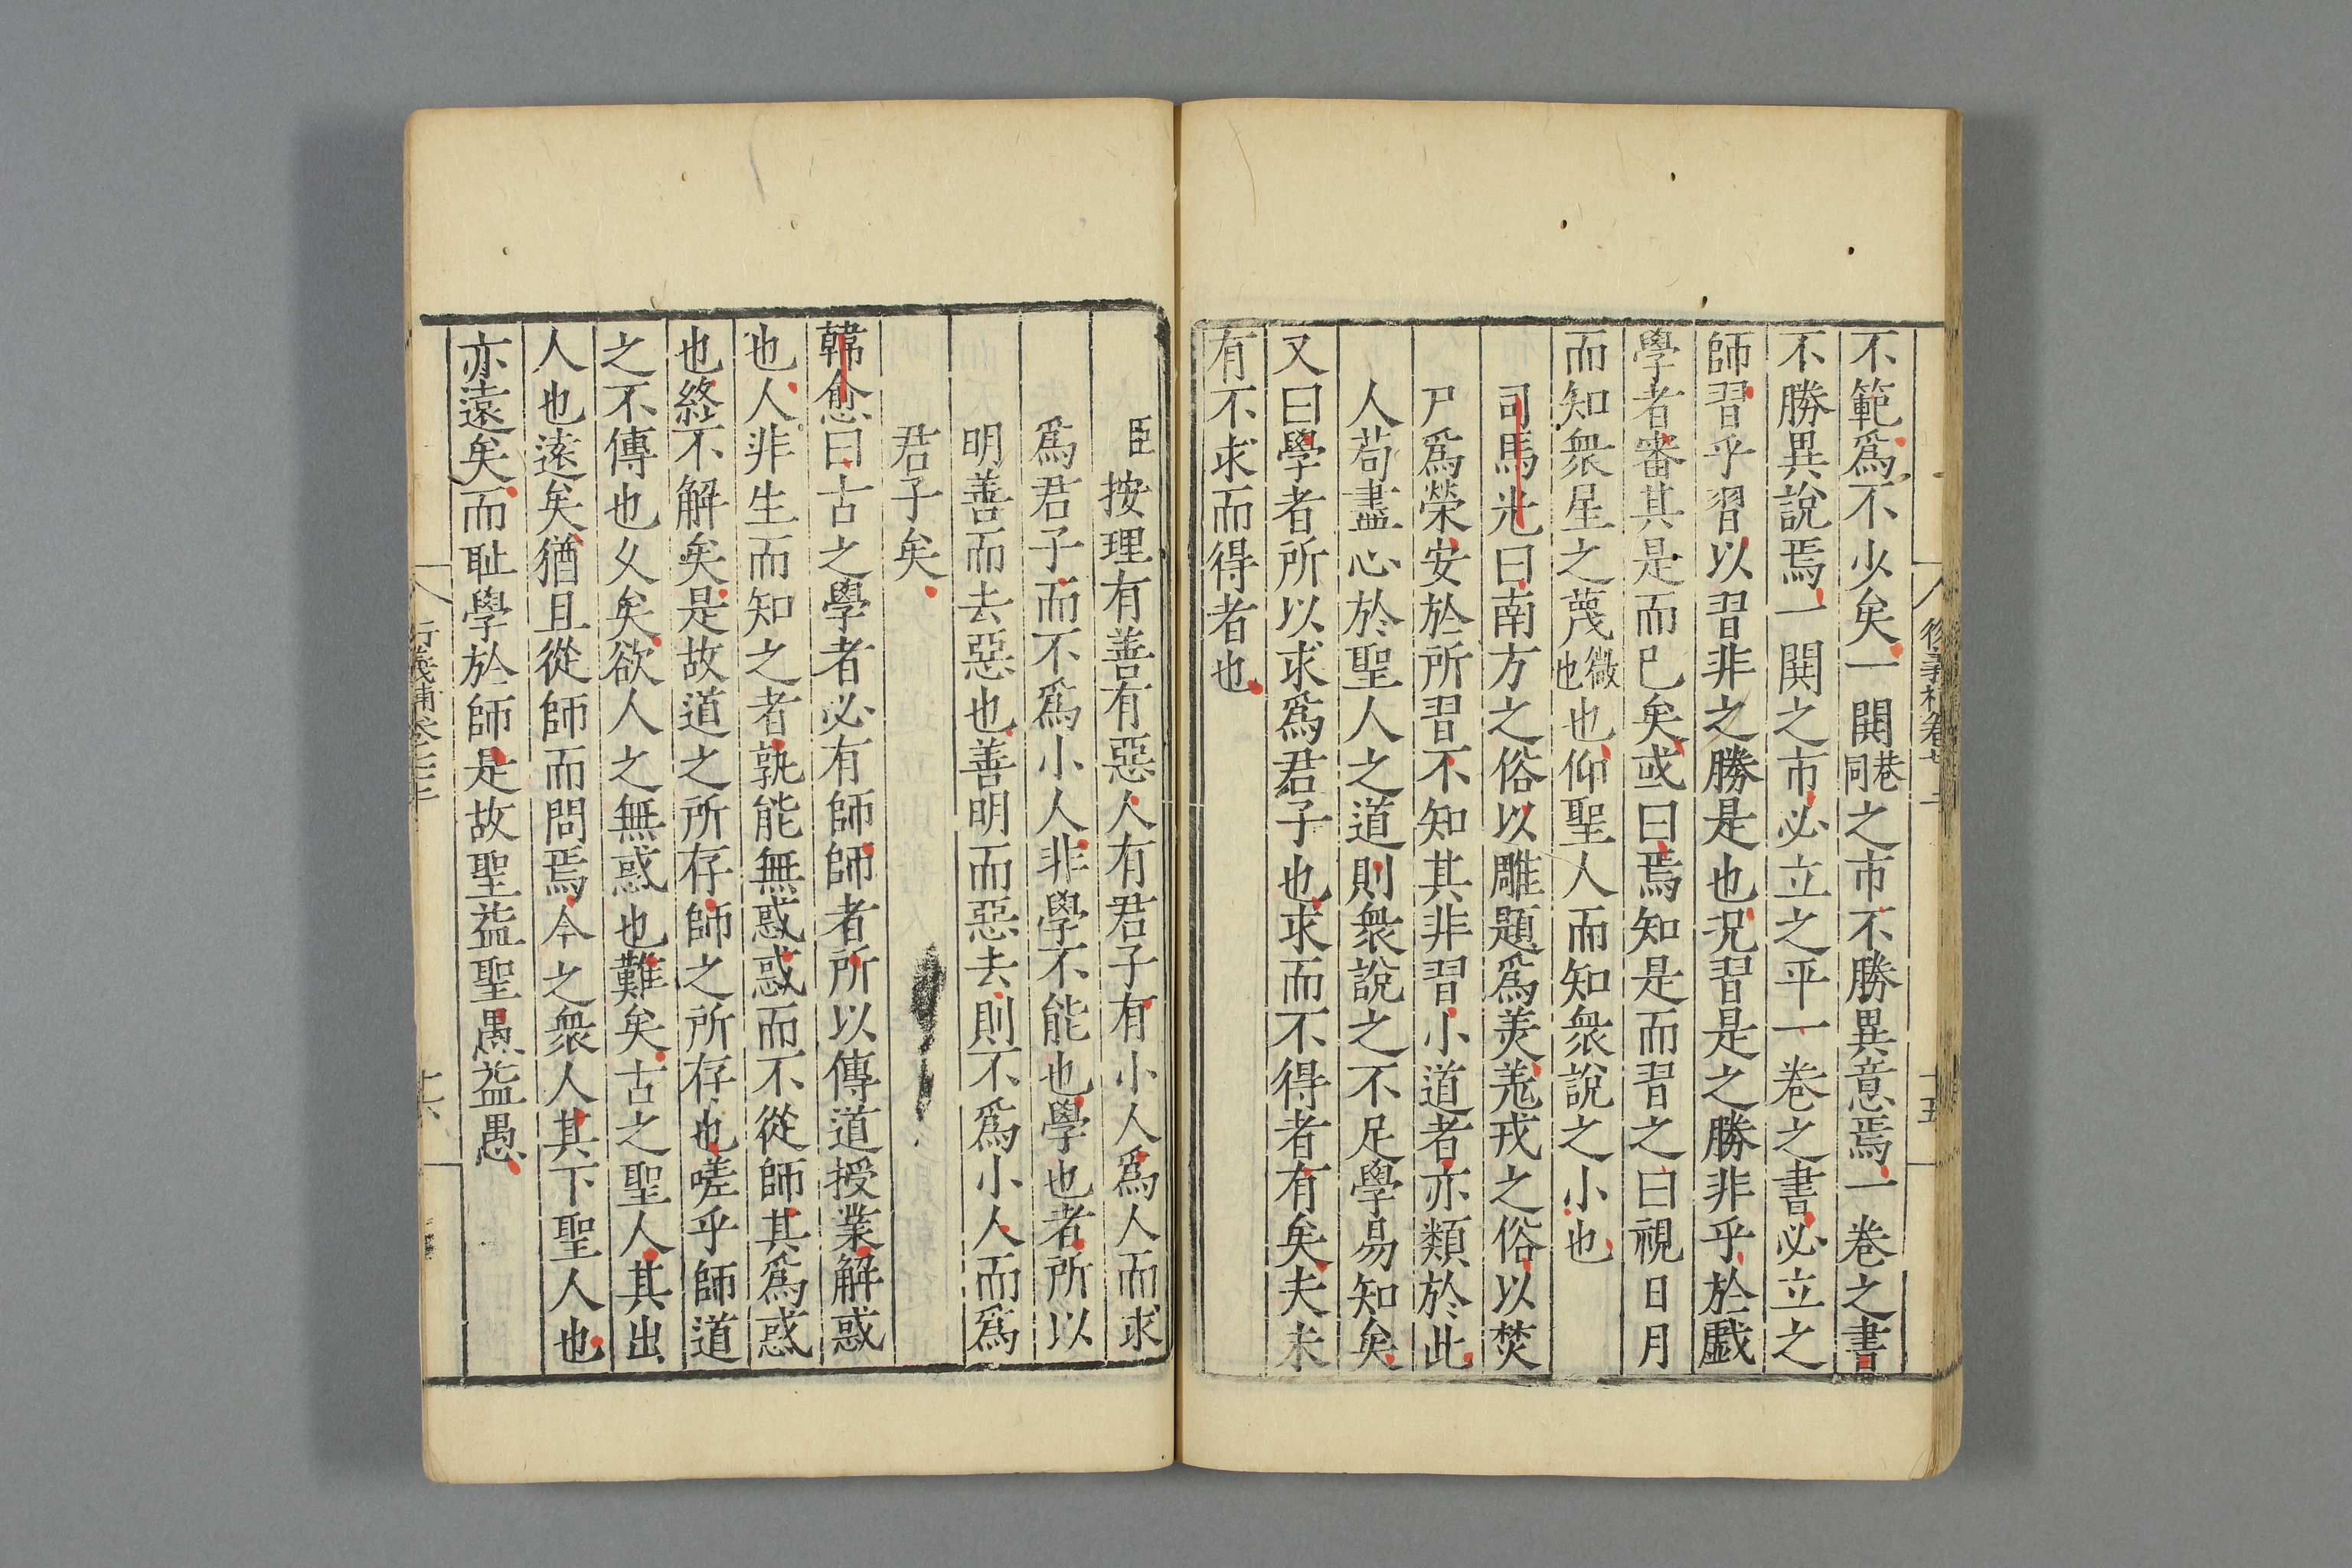 不範爲不少矣一閧巷同之市不勝異意焉一巷之書
不勝異說焉一閧之市必立之平一巷之書必立之
師習乎習以習非之勝是也況習是之勝非乎於戱
學者審其是而已矣或曰焉知是而習之曰視日月
而知衆星之蔑微也也仰聖人而知衆說之小也
司馬光曰南方之俗以雕題爲美羗戎之俗以焚
尸爲榮安於所習不知其非習小道者亦類於此
人苟盡心於聖人之道則衆說之不足學易知矣
又曰學者所以求爲君子也求而不得者有矣夫未
有不求而得者也
臣按理有善有惡人有君子有小人爲人而求
爲君子而不爲小人非學不能也學也者所以
明善而去惡也善明而惡去則不爲小人而爲
君子矣
韓愈曰古之學者必有師師者所以傳道授業解惑
也人非生而知之者孰能無惑惑而不從師其爲惑
也終不解矣是故道之所存師之所存也嗟乎師道
之不傳也久矣欲人之無惑也難矣古之聖人其出
人也遠矣猶且從師而問焉今之衆人其下聖人也
亦遠矣而耻學於師是故聖益聖愚益愚